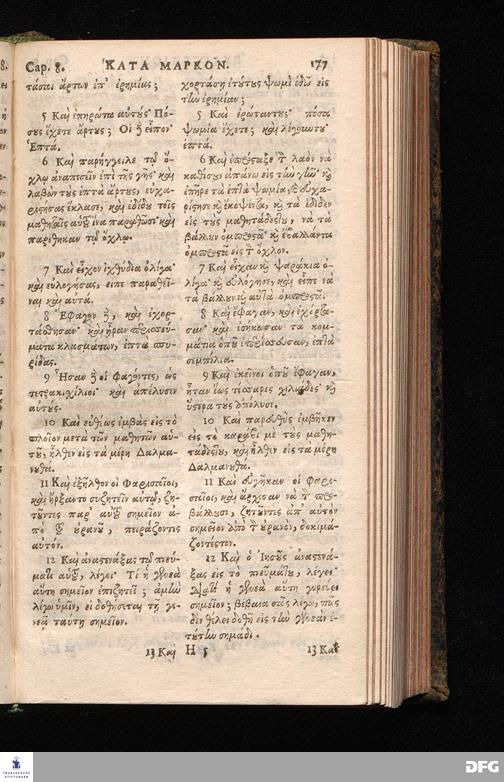 Cap. 8. ΚΑΤΑ ΜΑΡΚΟΝ. 177
τᾶσαι ἄρτων ἐπ' ἐρημίας;
5 Καὶ ἐπηρώτα αὐτοὺς· Πό-
σους ἔχετε ἄρτους; Οἱ δὲ εἶπον·
Ἑπτά.
6 Καὶ παρήγγειλε τῷ ὄ-
χλῳ ἀναπεσεῖν ἐπὶ τῆς γῆς· καὶ
λαβὼν τοὺς ἑπτὰ ἄρτους, εὐχα-
ριστήσας ἔκλασε, καὶ ἐδίδου τοῖς
μαθηταῖς αὐτοῦ ἵνα παραθῶσι· καὶ
παρέθηκαν τῷ ὄχλῳ.
7 Καὶ εἶχον ἰχθύδια ὀλίγα·
καὶ εὐλογήσας, εἶπε παραθεῖ-
ναι καὶ αὐτά.
8 Ἔφαγον δὲ, καὶ ἐχορ-
τάσθησαν· καὶ ἦραν περισσεύ-
ματα κλασμάτων, ἑπτὰ σπυ-
ρίδας.
9 Ἦσαν δὲ οἱ φαγόντες, ὡς
τετρακισχίλιοι· καὶ ἀπέλυσεν
αὐτούς.
10 Καὶ εὐθέως ἐμβὰς εἰς τὸ
πλοῖον μετὰ τῶν μαθητῶν αὐ-
τοῦ, ἦλθεν εἰς τὰ μέρη Δαλμα-
νουθά.
11 Καὶ ἐξῆλθον οἱ Φαρισαῖοι,
καὶ ἤρξαντο συζητεῖν αὐτῷ, ζη-
τοῦντες παρ' αὐτοῦ σημεῖον ἀ-
πὸ τοῦ οὐρανοῦ, πειράζοντες
αὐτόν.
12 Καὶ ἀναστενάξας τῷ πνεύ-
ματι αὐτοῦ, λέγει· Τί ἡ γενεὰ
αὕτη σημεῖον ἐπιζητεῖ; ἀμὴν
λέγω ὑμῖν, εἰ δοθήσεται τῇ γε-
νεᾷ ταύτῃ σημεῖον.
13 Καὶ
χορτάσῃ ἐτούτους ψωμὶ ἐδῶ εἰς
τὴν ἐρημίαν;
5 Καὶ ἐρώταντους· πόσα
ψωμία ἔχετε; καὶ λέγουντου·
ἑπτά.
6 Καὶ ἐπρόσταξε τὸν λαὸν νὰ
καθίσουν ἀπάνω εἰς τὴν γῆν· καὶ
ἐπῆρε τὰ ἑπτὰ ψωμία, καὶ εὐχα-
ρίστησε καὶ ἔκοψέντα, καὶ τὰ ἔδιδεν
εἰς τοὺς μαθητάδεςτου, νὰ τὰ
βάλλουν ὀμπροστά· καὶ ἐβάλλαντα
ὀμπροστὰ εἰς τὸν ὄχλον.
7 Καὶ εἶχαν καὶ ψαράκια ὀ-
λίγα· καὶ εὐλόγησε, καὶ εἶπε νὰ
τὰ βάλλουν καὶ αὐτὰ ὀμπροστά.
8 Καὶ ἔφαγαν, καὶ ἐχορτά-
σαν· καὶ ἐσήκωσαν τὰ κομ-
μάτια ὁποῦ ἐπερίσσευσαν, ἑπτὰ
σεμπίλια.
9 Καὶ ἐκεῖνοι ὁποῦ ἔφαγαν,
ἦταν ἕως τέσσαρες χιλιάδες· καὶ
ὕστερα τοὺς ἀπόλυσε.
10 Καὶ παρευθὺς ἐμβῆκεν
εἰς τὸ καράβι μὲ τοὺς μαθη-
τάδεςτου, καὶ ἦλθεν εἰς τὰ μέρη
Δαλμανουθά.
11 Καὶ εὐγῆκαν οἱ Φαρι-
σαῖοι, καὶ ἄρχισαν νὰ τὸν προσ-
βάλλουσι, ζητῶντες ἀπ' αὐτὸν
σημεῖον ἀπὸ τὸν οὐρανὸν, δοκιμά-
ζοντέςτον.
12 Καὶ ὁ Ἰησοῦς ἀναστενά-
ξας εἰς τὸ πνεῦμάτου, λέγει·
Διατὶ ἡ γενεὰ αὕτη γυρεύει
σημεῖον; βέβαια σᾶς λέγω, πῶς
δὲν θέλει δοθῆ εἰς τὴν γενεὰν ἐ-
τούτην σημάδι.
H 5 13 Καὶ
FRANCKESCHE STIFTUNGEN
DFG